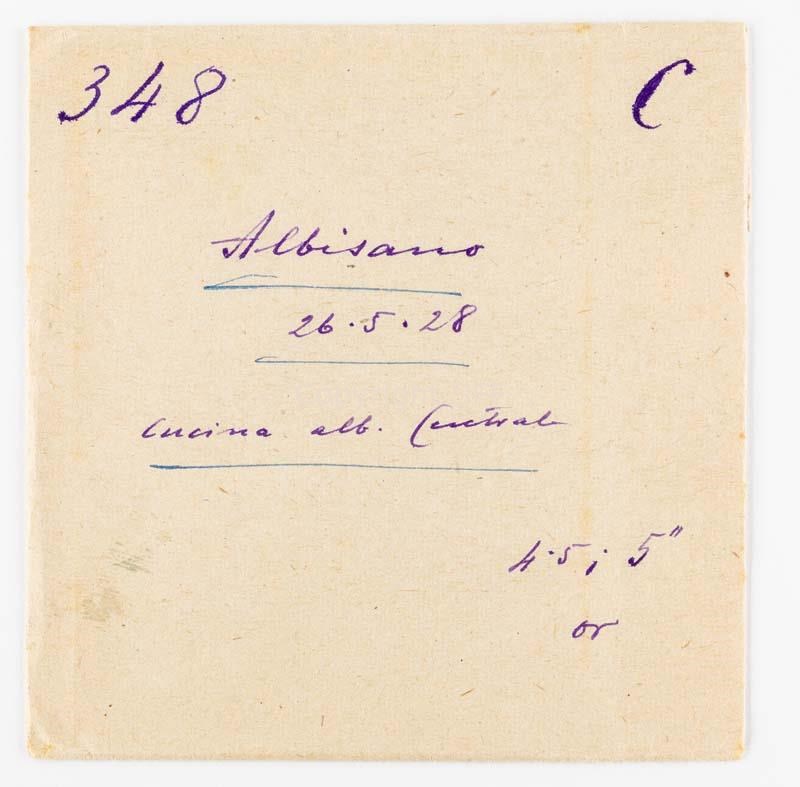 348 C
Albisano
26.5.28
cucina alb. Centrale
4.5; 5"
or